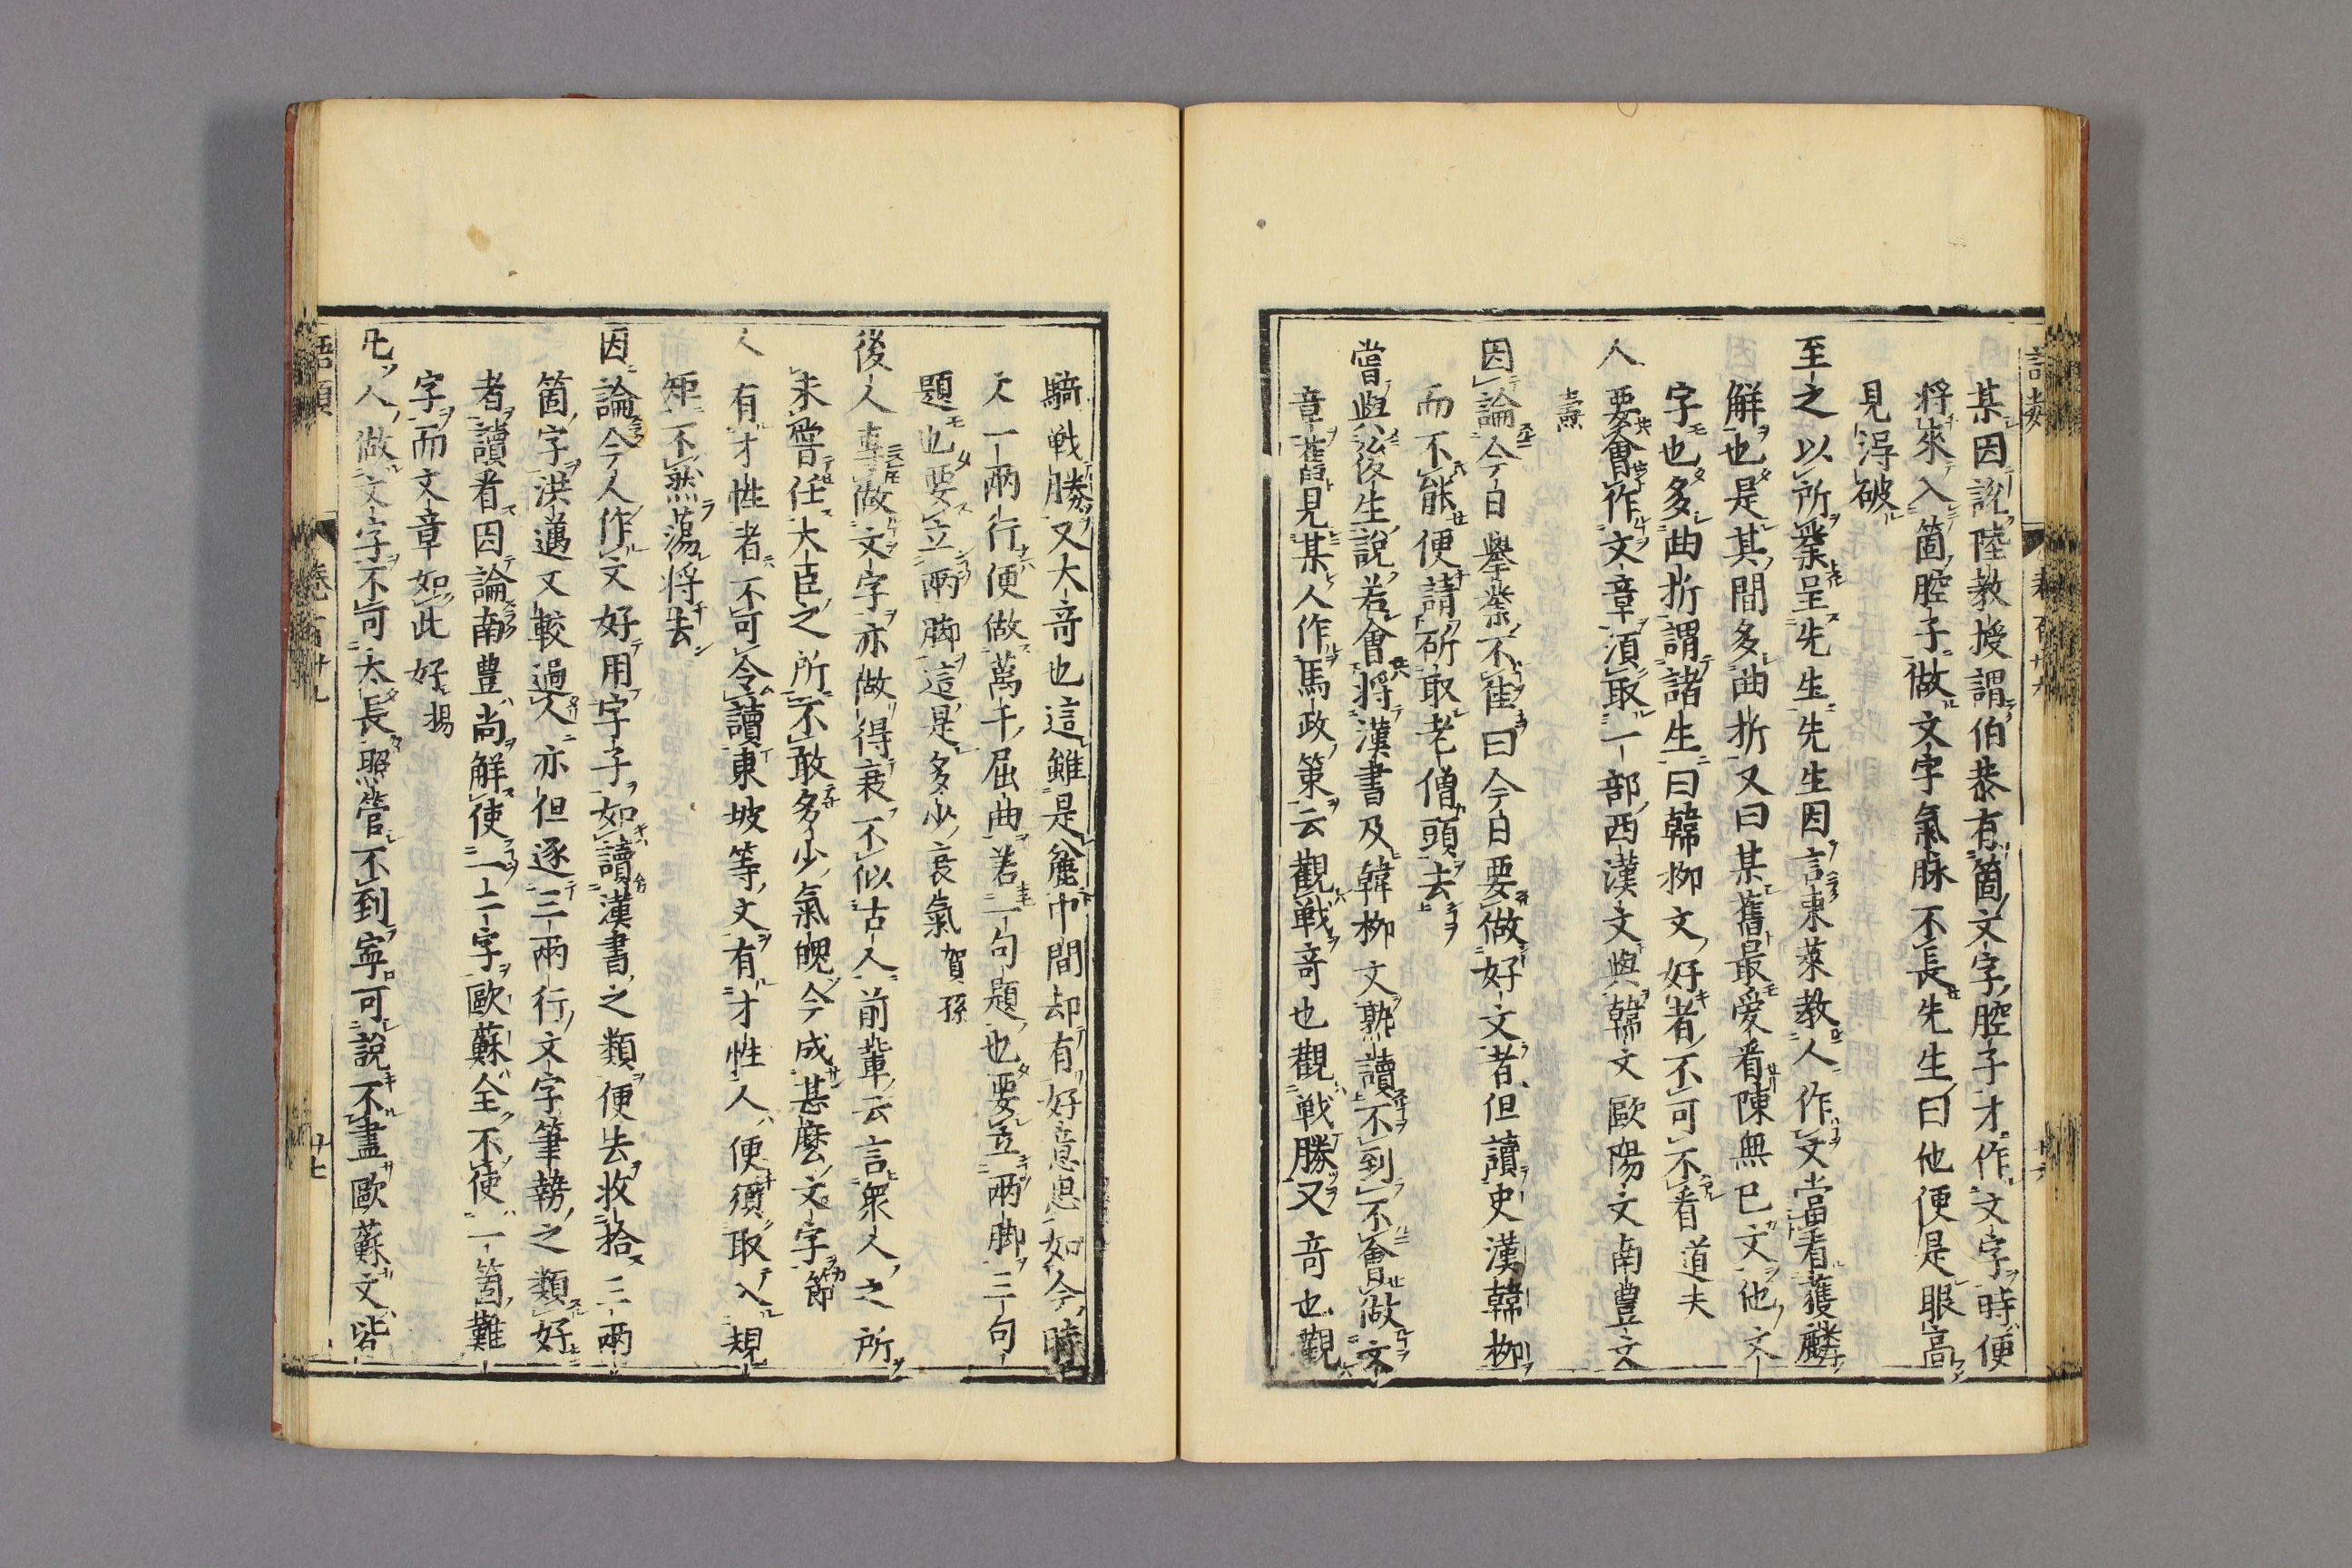 某因說陸教授謂伯恭有箇文字腔子才作文字時便
將來入箇腔子做文字氣脉不長先生曰他便是眼高
見得破
至之以所業呈先生先生因言東萊教人作文當看獲麟
解也是其間多曲折又曰某舊最愛看陳無己文他文
字也多曲折謂諸生曰韓柳文好者不可不看 道夫
人要會作文章須取一部西漢文與韓文歐陽文南豐文
燾
因論今日舉業不佳曰今日要做好文者但讀史漢韓柳
而不能便請斫取老僧頭去
嘗與後生說若會將漢書及韓柳文熟讀不到不會做文
章舊見某人作馬政策云觀戰奇也觀戰勝又奇也觀
騎戰勝又大奇也這雖是麄中間却有好意思如今時
文一兩行便做萬千屈曲若一句題也要立兩脚三句
題也要立兩脚這是多少衰氣 賀孫
後人專做文字亦做得衰不似古人前輩云言衆人之所
未嘗任大臣之所不敢多少氣魄今成甚麼文字 節
人有才性者不可令讀東坡等文有才性人便須取入規
矩不然蕩將去
因論今人作文好用字子如讀漢書之類便去收拾三兩
箇字洪邁又較過人亦但逐三兩行文字筆勢之類好
者讀看因論南豐尚解使一二字歐蘇全不使一箇難
字而文章如此好 揚
凡人做文字不可太長照管不到寧可說不盡歐蘇文皆
語類 卷百廿九 廿七